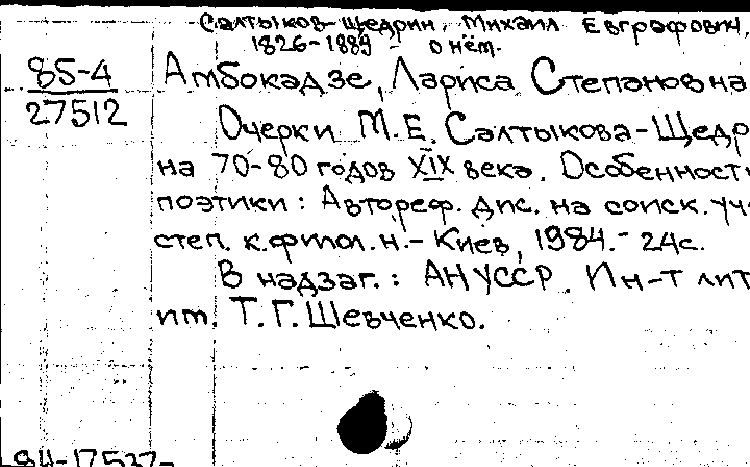 Салтыков-Щедрин, Михаил Евграфович,
1826-1889 - о нём.
85-4
27512
Амбокадзе, Лариса Степановна
Очерки М.Е. Салтыкова-Щедр
на 70-80 годов XIX века. Особенност
поэтики: Автореф. дис. на соиск. уч
степ. к.филол.н.- Киев, 1984.- 24с.
В надзаг.: АН УССР. Ин-т лит
им. Т.Г.Шевченко.
84-17537-